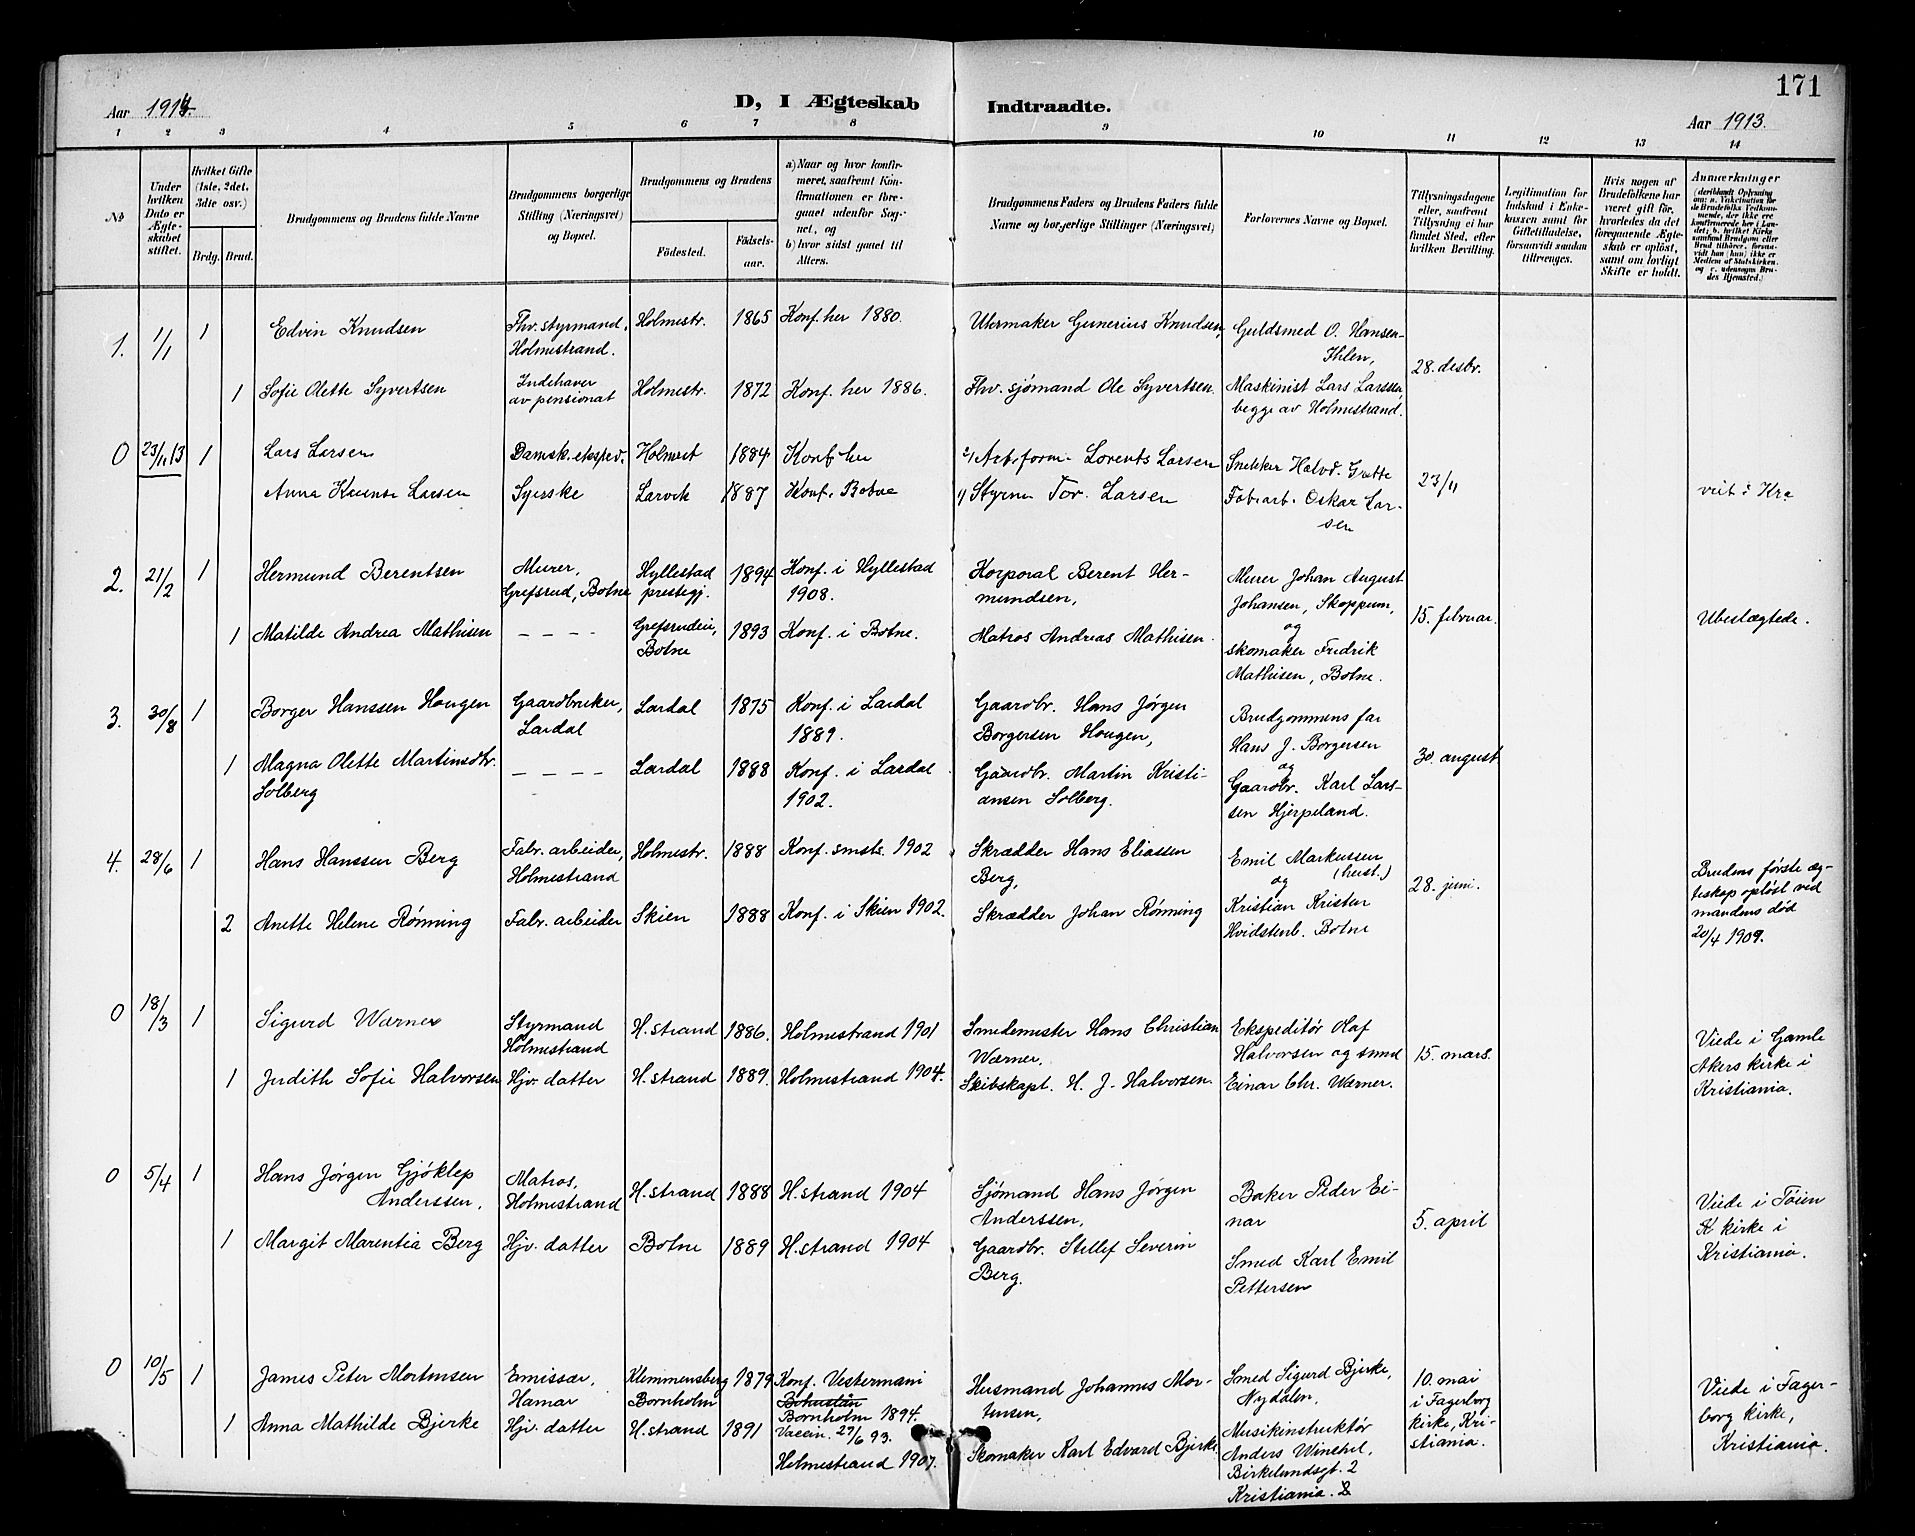 171
Aar 1914.
D, I Ægteskab Indtraadte.
Aar 1913.
1 2 3 4 5 6 7 8 9 10 11 12 13 14
No
Under hvilken Dato er Ægteskabet stiftet.
Hvilket Gifte (1ste, 2det, 3die osv.)
Brdg. Brud.
Brudgommens og Brudens fulde Navne
Brudgommens borgerlige Stilling (Næringsvei) og Bopæl.
Brudgommens og Brudens
Födested.
Födselsaar.
a) Naar og hvor konfirmeret, saafremt Konfirmationen er foregaaet udenfor Sognet, og
b) hvor sidst gaaet til Alters.
Brudgommens Faders og Brudens Faders fulde Navne og borgerlige Stillinger (Næringsvei)
Forlovernes Navne og Bopæl.
Tillysningsdagene eller, saafremt Tillysning ei har fundet Sted, efter hvilken Bevilling.
Legitimation for Indskud i Enkekassen samt for Giftetilladelse, forsaavidt saadan tiltrænges.
Hvis nogen af Brudefolkene har været gift för, hvorledes da det foregaaende Ægteskab er oplöst, samt om lovligt Skifte er holdt.
Anmærkninger
(deriblandt Oplysning om: a. Vakcination for de Brudefolks Vedkommende, der ikke ere konfirmerede her i Landet; b. hvilket Kirkesamfund Brudgom eller Brud tilhörer, forsaavidt han (hun) ikke er Medlem af Statskirken, og c. udensogns Brudes Hjemsted.)
1. 1/1 1 Edvin Knudsen
Fhv. styrmand, Holmestrand.
Holmestr. 1865 Konf. her 1880.
Urmaker Gunerius Knudsen,
Guldsmed O. Hansen-Ihlen,
28. desbr.
1 Sofie Olette Syvertsen
Indehaver av pensionat
Holmestr. 1872 Konf. her 1886.
Fhv. sjømand Ole Syvertsen.
Maskinist Lars Larssen, begge av Holmestrand.
0 23/11 13 1 Lars Larsen
Dampsk. eksped. Holmest 1884 Konf. her
2/ Arb.form. Lorents Larsen
Snekker Halvd. Grette
23/11
Anna Larsen
Syerske Larvik 1887 Konf. Botne
1/ Styrm Tor. Larsen
Fab.arb. Oskar Larsen
viet i Kra
2. 21/2 1 Hermund Berentsen
Murer, Grefsrud, Botne
Hyllestad prestegj. 1894 Konf. i Hyllestad 1908.
Korporal Berent Hermundsen,
Murer Johan August Johansen, Skoppum,
og
15. februar.
Ubeslægtede.
1 Matilde Andrea Mathisen
– – – –
Grefsrudeie, Botne 1893 Konf. i Botne.
Matros Andreas Mathisen.
skomaker Fredrik Mathisen, Botne.
3. 30/8 1 Borger Hanssen Hougen
Gaardbruker, Lardal
Lardal 1875 Konf. i Lardal 1889.
Gaardbr. Hans Jørgen Borgersen Hougen,
Brudgommens far Hans J. Borgersen
og
30. august
1 Magna Olette Martinsdtr. Solberg
– – – –
Lardal 1888 Konf. i Lardal 1902.
Gaardbr. Martin Kristiansen Solberg.
Gaardbr. Karl Larssen Hjerpeland.
4. 28/6 1 Hans Hanssen Berg
Fabr. arbeider, Holmestrand
Holmestr. 1888 Konf. smsts. 1902
Skrædder Hans Eliassen Berg,
Emil Markussen
(herst.)
og
28. juni.
Brudens første ægteskap opløst ved mandens død 20/4 1909.
2 Anette Helene Rønning
Fabr. arbeider Skien 1888 Konf. i Skien 1902.
Skrædder Johan Rønning
Kristian Kristen Hvidstenb. Botne
0 18/3 1 Sigurd Wærner
Styrmand Holmestrand
H.strand 1886. Holmestrand 1901
Smedemester Hans Christian Wærner.
Ekspeditør Olaf Halvorsen og smed
15. mars.
Viede i Gamle Akers kirke i Kristiania.
1 Judith Sofie Halvorsen
Hjv. datter H.strand 1889. Holmestrand 1904.
Skibskapt. H. J. Halvorsen.
Einar Chr. Wærner.
0 5/4 1 Hans Jørgen Gjøklep Anderssen,
Matros, Holmestrand
H.strand 1888 H.strand 1904
Sjømand Hans Jørgen Anderssen,
Baker Peder Einar
5. april
Viede i Tøien K kirke i Kristiania.
1 Margit Marentia Berg
Hjv. datter Botne 1889 H.strand 1904
Gaardbr. Stillef Severin Berg.
Smed Karl Emil Pettersen
0 10/5 1 James Peter Mortensen
Emissær, Hamar
Klemmensberg Bornholm 1879 Konf. Vestermani
Bornholm 1894.
Vaccin. 27/6 93.
Husmand Johannes Mortensen,
Smed Sigurd Bjerke, Nydalen,
10. mai i Fagerborg kirke, Kristiania.
Viede i Fagerborg kirke, Kristiania.
1 Anna Mathilde Bjerke
Hjv. datter H.strand 1891
Holmestrand 1907.
Skomaker Karl Edvard Bjerke
Musikinstruktør Anders Winchel, Birkelundsgt. 2 Kristiania.